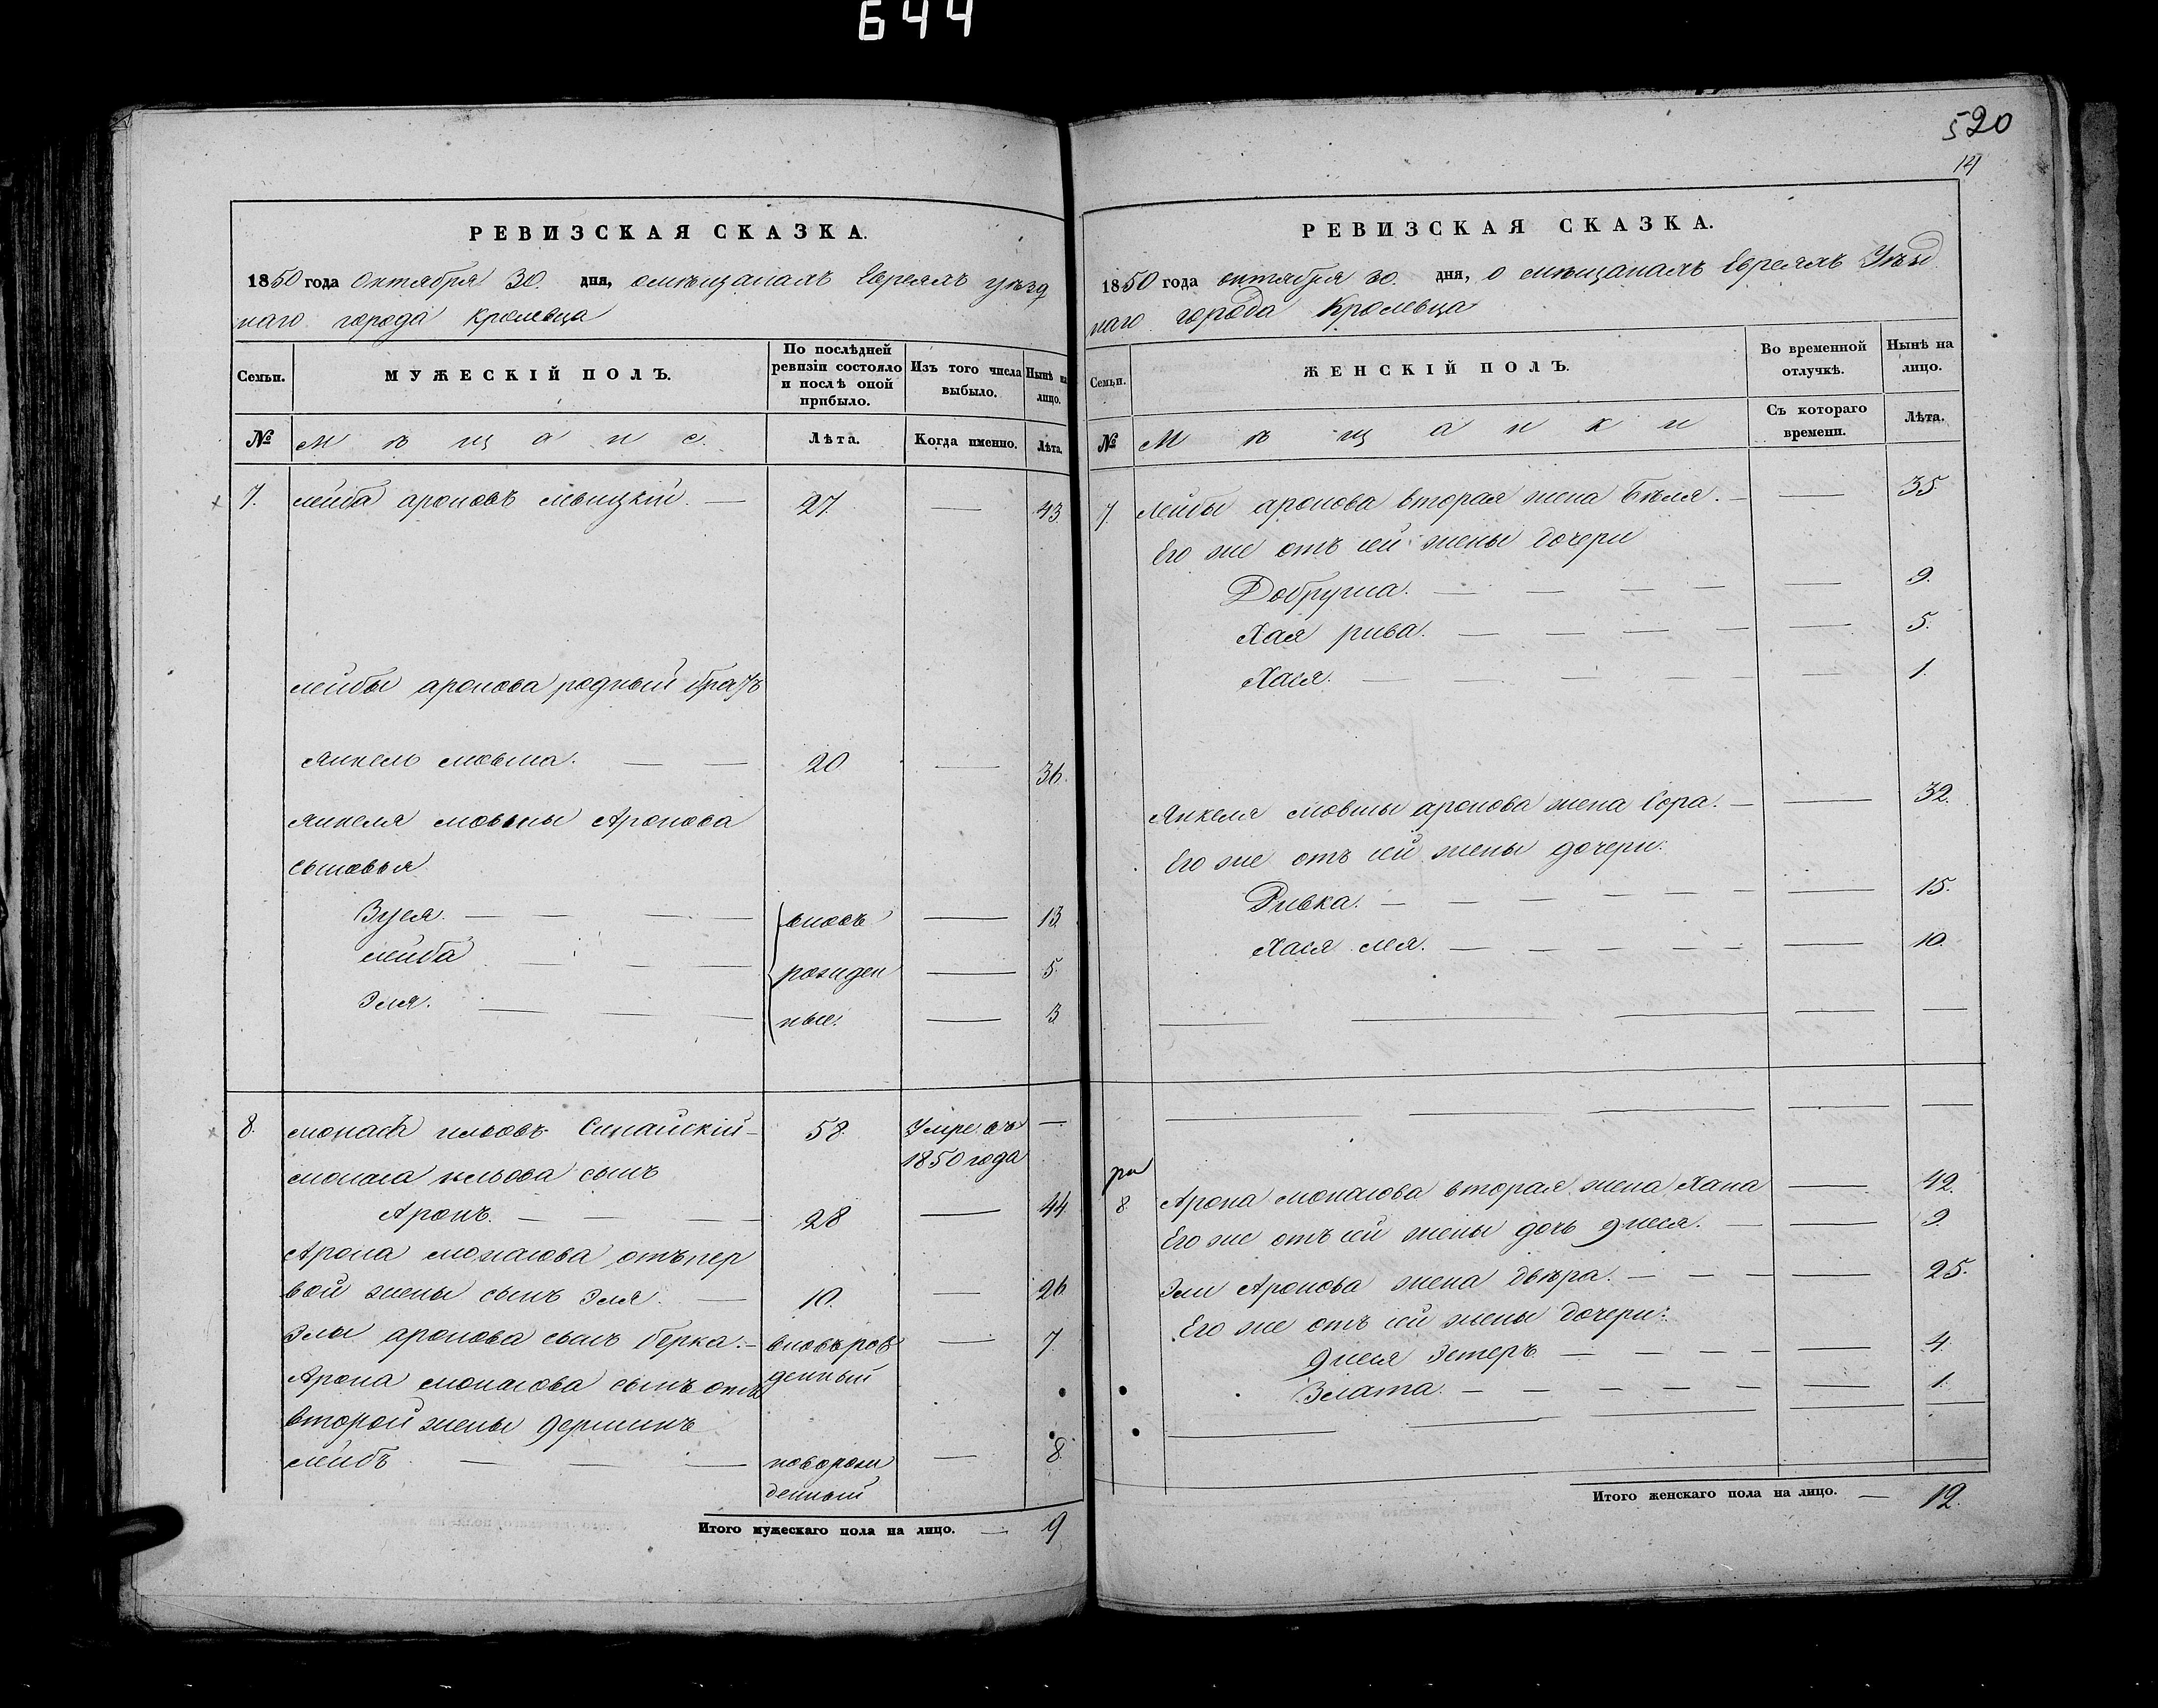 644
РЕВИЗСКАЯ СКАЗКА.
1850 года октября 30. дня, о мѣщанахъ Евреяхъ уѣзд
наго города Кролевца
Семьи.
МУЖЕСКІЙ ПОЛЪ.
По послѣдней
ревизіи состояло
и послѣ оной
прибыло.
Изъ того числа
выбыло.
Нынѣ на
лицо.
№
Мѣщане.
Лѣта.
Когда именно.
Лѣта.
7. Лейба Ароновъ — 27 — 43
Лейбы Аронова родный братъ
Янкель Мовша. — — 20 — 36.
Янкеля Мовши Аронова
сыновья
Зуся. — — — вновь — 13
Лейба — — — рожден — 5.
Эля. — — — ные. — 3
8. Монасъ Синайскій — 58. Умре въ —
1850 года
сынъ
Аронъ. — — — 28 — 44
Арона Монасова отъ пер
вой жены сынъ Эля. — 10. — 26
Эли Аронова сынъ Берка. — вновь рож — 7.
денный
Арона Монасова сынъ отъ
второй жены
Лейбъ — — — новорож — 8.
денный
Итого мужескаго пола на лицо. — 9
520
РЕВИЗСКАЯ СКАЗКА.
1850 года октября 30. дня, о мѣщанахъ Евреяхъ Уѣзд
наго города Кролевца
Семьи.
ЖЕНСКІЙ ПОЛЪ.
Во временной
отлучкѣ.
Нынѣ на
лицо.
№
Мѣщанки
Съ котораго
времени.
Лѣта.
7. Лейбы Аронова вторая жена Бѣля. — — 35
Его же отъ сей жены дочери
Добруша. — — — — — 9.
Хая Рива. — — — — — 5.
Хася. — — — — — 1.
Янкеля Мовши Аронова жена Сора. — — 32.
Его же отъ сей жены дочери:
Ривка. — — — — — — 15.
Хася Лея. — — — — — — 10.
— — — — —
— — — — — —
8 Арона Монасова вторая жена Хана — 42.
Его же отъ сей жены дочь Гнеся. — — 9.
Эли Аронова жена Двѣра. — — — — 25.
Его же отъ сей жены дочери:
Гнеся Эстеръ — — — — — 4.
Злата. — — — — — — 1.
— — — — —
Итого женскаго пола на лицо. — 12.